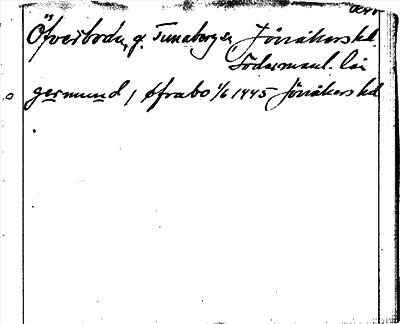 Öfverboda, g. Tunabergen Jönåkers hd.
Södermanl. län
germund, Ofrabo 1/6 1445 Jönåkers hd